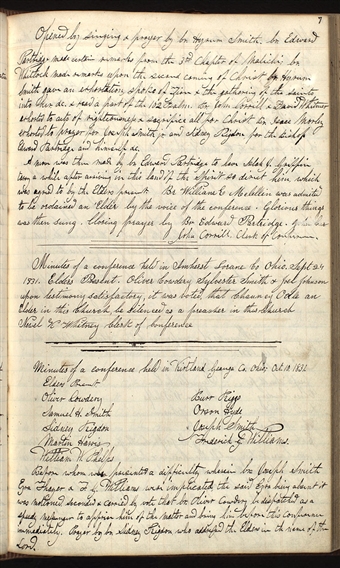 7
Opened by singing & prayer by br Hyrum Smith. br Edward
Partridge made certain remarks from the 3rd Chapter of Malichi; br
Whitlock made remarks upon the second coming of Christ br Hyrum
Smith gave an exhortation, spoke of Zion & the gathering of the saints
into her &c. & read a part of the 102 Psalm. Br John Corrill & David Whitmer
exhorted to acts of righteousness & sacrifice all for Christ br Isaac Morley
exhorted to prayer for Joseph Smith jr and Sidney Rigdon for the bishop
Edward Partridge and himself &c.
A was then made by br Edward Partridge to
a while after arriving in this land if the Spirit so direct him, which
was agreed to by the Elders present. Br William E Mclellin was admitted
to be ordained an Elder by the voice of the conference. Glorious things
was then sung. Closing prayer by Br Edward Partridge
John Corrill. Clerk of Conference.
Minutes of a conference held in Amherst Lorane Co Ohio. Sept 24
1831. Elders Present. Oliver Cowdery Sylvester Smith & Joel Johnson
upon testimony satisfactory, it was voted, that an
Elder in this Church, be silenced as a preacher in this Church
Newel K. Whitney Clerk of Conference
Minutes of a conference held in Kirtland Geauga Co. Ohio, Oct. 10, 1831.
Elders Present
Oliver Cowdery Burr Riggs
Samuel H. Smith Orson Hyde
Sidney Rigdon Joseph Smith
Martin Harris Frederick G. Williams.
William W. Phelps
Before whom was presented a difficulty wherein br Joseph Smith
Ezra & F. G. Williams was implicated the said Ezra being absent it
was motioned seconded & carried by vote that br Oliver Cowdery be dispatched as a
speedy messenger to apprise him of the matter and bring him before this conference
immediately. Prayer by br Sidney Rigdon who addressed the Elders in the name of the
Lord.